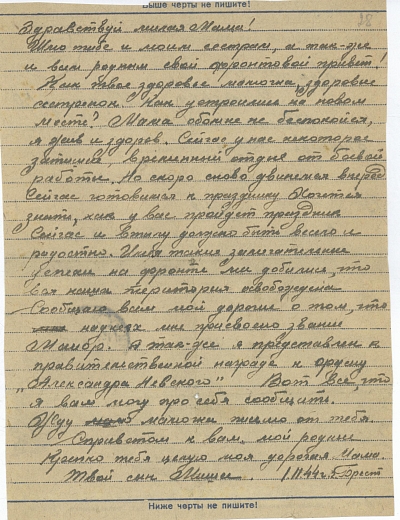 Выше черты не пишите!
28
Здравствуй милая Мама!
Шлю тебе и моим сестрам, а так-же
и всем родным свой фронтовой привет!
Как твое здоровье мамочка, здоровье
сестренок? Как устроились на новом
месте? Мама обо мне не беспокойся,
я жив и здоров. Сейчас у нас некоторое
затишье, временный отдых от боевой
работы. Но скоро снова двинемся вперед
Сейчас готовимся к празднику Хочется
знать, как у вас пройдет праздник
Сейчас и в тылу должно быть весело и
радостно. Имея такие замечательные
успехи на фронте мы добились, что
вся наша територия освобождена
Сообщаю всем мой дорогие о том, что
на днях мне присвоено звание
Майор. А так-же я представлен к
правительственной награде к ордену
„Александра Невского" Вот все, что
я вам могу про себя сообщить.
Жду мамочка письмо от тебя.
С приветом к вам, мой родные
Крепко тебя целую моя дорогая Мама.
Твой сын Миша. 1.11.44 г. Брест
Ниже черты не пишите!